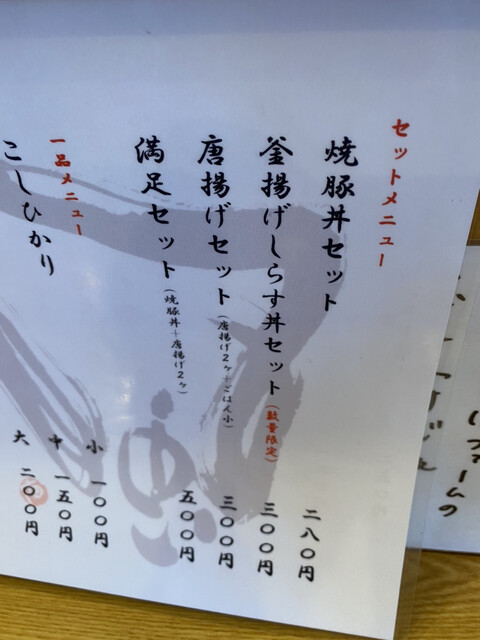 セットメニュー
焼豚丼セット 二八〇円
釜揚げしらす丼セット(数量限定) 三〇〇円
唐揚げセット(唐揚げ2ケ+ごはん小) 三〇〇円
満足セット(焼豚丼+唐揚げ2ケ) 五〇〇円
一品メニュー
こしひかり 小 一〇〇円
中 一五〇円
大 二〇〇円
ファームの